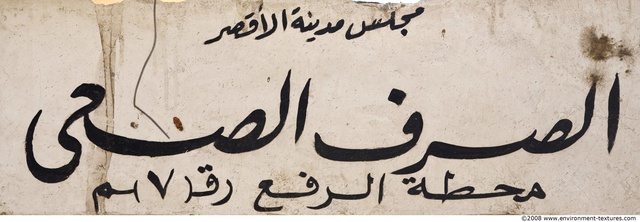 مجلس مدينة الأقصر
الصرف الصحى
محطة الرفع رقم (٧)
©2008 www.environment-textures.com